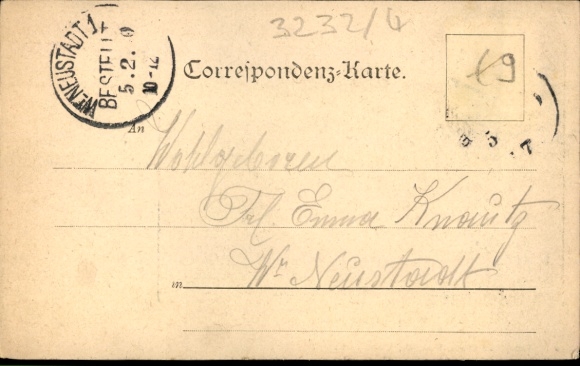 3232/4
Wr. NEUSTADT 1
BESTELLT
5.2.0
10-12
Correspondenz-Karte.
An
Wohlgeboren
Frl. Emma Knautz
in Wr Neustadt